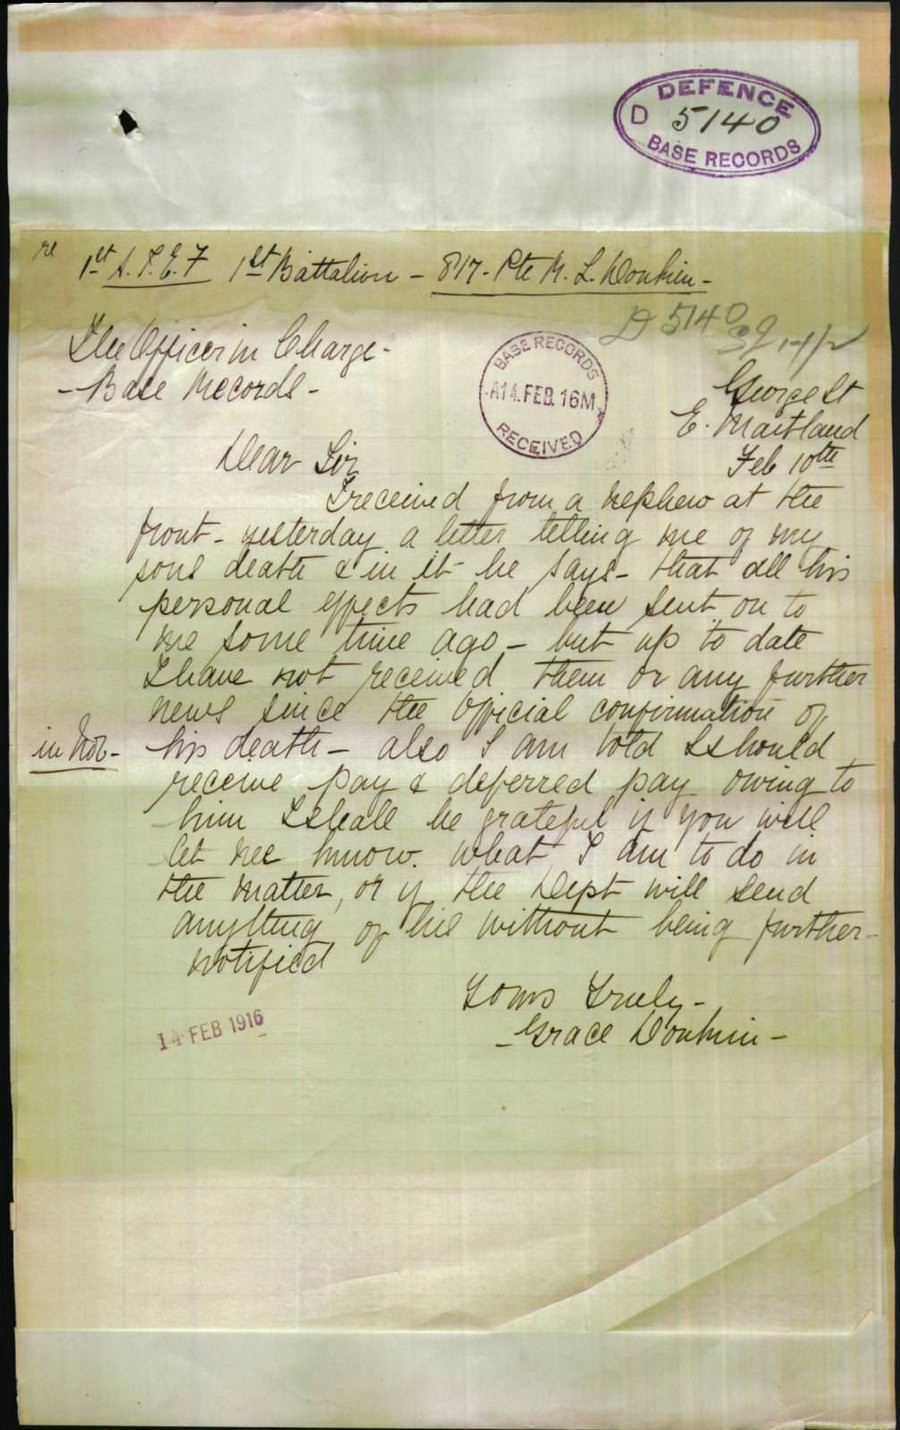 DEFENCE
D 5140
BASE RECORDS
re 1st A.I.E.F 1st Battalion - 817 - Pte R. L. Donkin -
D 5140
The Officer in Charge -
- Base Records -
BASE RECORDS
A14. FEB. 16M
RECEIVED
George St
E. Maitland
Feb 10th
Dear Sir
I received from a nephew at the
front - yesterday a letter telling me of my
sons death & in it he says - that all his
personal effects had been sent on to
me some time ago - but up to date
I have not received them or any further
news since the official confirmation of
in Nov - his death - also I am told I should
receive pay & deferred pay owing to
him I shall be grateful if you will
let me know. what I am to do in
the matter, or if the Dept will send
anything of his without being further -
notified
Yours Truly -
- Grace Donkin -
14 FEB 1916